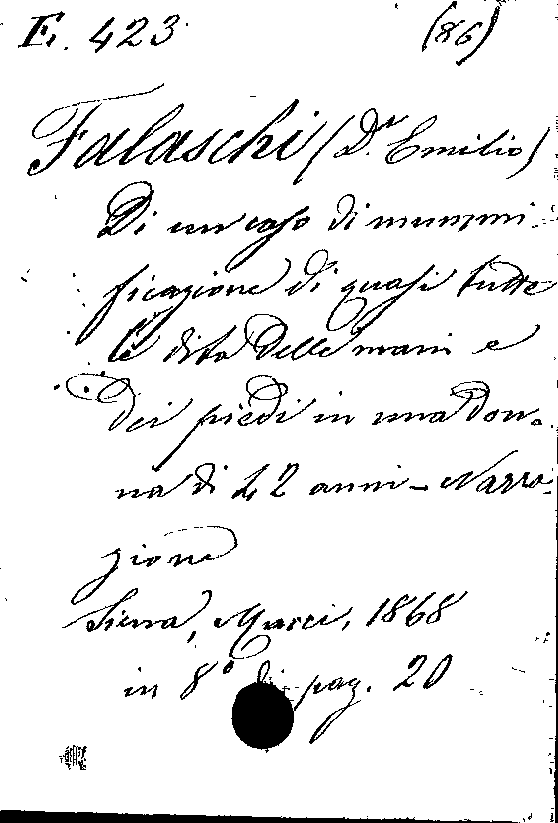 E. 423 (86)
Falaschi (Dr. Emilio)
Di un caso di mummi-
ficazione di quasi tutte
le dita delle mani e
dei piedi in una don-
na di 42 anni - Narra-
zione
Siena, Mucci, 1868
in 8° di pag. 20